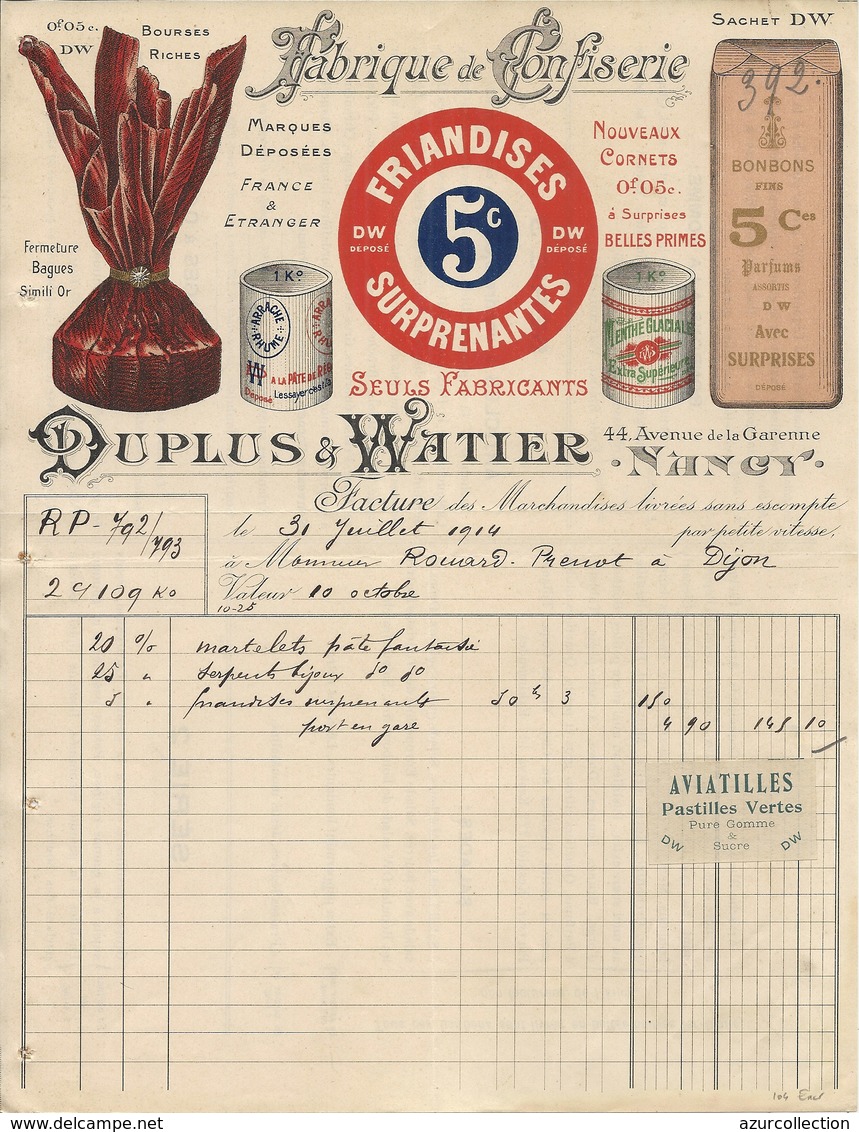 0f.05c.
DW
Bourses
Riches
Fabrique de Confiserie
Sachet DW
392.
Marques
Déposées
France
&
Etranger
FRIANDISES
SURPRENANTES
5c
DW
DÉPOSÉ
DW
DÉPOSÉ
Nouveaux
Cornets
0f.05c.
à Surprises
BELLES PRIMES
BONBONS
FINS
5 Ces
Parfums
ASSORTIS
D W
Avec
SURPRISES
DÉPOSÉ
Fermeture
Bagues
Simili Or
1 Ko
ARRACHE
RHUME
A LA PÂTE DE RÉG
Déposé
1 Ko
MENTHE GLACIAL
Extra Supérieure
Seuls Fabricants
Duplus & Watier
44, Avenue de la Garenne
· NANCY ·
Facture des Marchandises livrées sans escompte
par petite vitesse,
RP - 792/793
le 31 Juillet 1914
à Monsieur Rouard. Prenot à Dijon
29 109 Ko
Valeur 10 octobre
10-25
20 % martelets pâte fantaisie
25 " serpents bijoux do do
5 " friandises surprenants 50 3 150
port en gare 4 90 145 10
AVIATILLES
Pastilles Vertes
Pure Gomme
&
Sucre
DW
DW
azurcollection